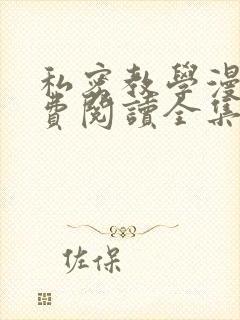 私密教學漫
費閱讀全集
佐保